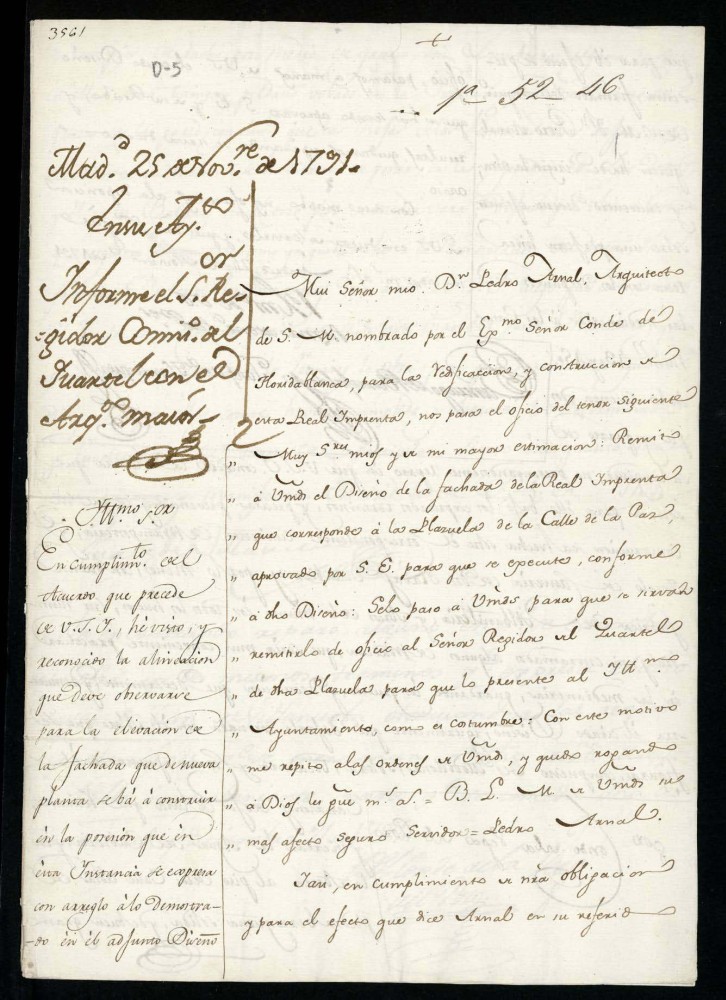 3561
D-5
+
1ª 52-46
Mad.d 25 de Nov.re de 1791.
En su Ay.to
Informe el S.or Re-
gidor Comis.o del
Quartel con el
Arq.to maior
Mui Señor mio. D.n Pedro Arnal, Arquitecto
de S. M. nombrado por el Ex.mo Señor Conde de
Floridablanca, para la Redificaccion, y construccion de
esta Real Imprenta, nos pasa el oficio del tenor siguiente
„ Muy S.res mios y de mi mayor estimacion: Remito
„ á Vmds el Diseño de la fachada de la Real Imprenta
„ que corresponde á la Plazuela de la Calle de la Paz,
„ aprovado por S. E. para que se execute, conforme
„ á dho Diseño: Selo paso á Vmds para que se sirvan
„ remitirlo de oficio al Señor Regidor del Quartel
„ de dha Plazuela para que lo presente al Ytt.mo
„ Ayuntamiento, como es costumbre: Con este motivo
„ me repito alas ordenes de Vmds, y quedo rogando
„ á Dios les gue m.s a.s = B. L. M. de Vmds su
„ mas afecto seguro Servidor = Pedro Arnal.
Iasi, en cumplimiento de nra obligacion
y para el efecto que dice Arnal en su referido
Ytt.mo S.or
En cumplim.to del
Acuerdo que precede
de V.S.Y., hé visto, y
reconocido la alineacion
que deve observarse
para la elevación de
la fachada que de nueva
planta se bá á construir
en la posesión que en
esta Instancia se expresa
con arreglo á lo demostra-
do en el adjunto Diseño